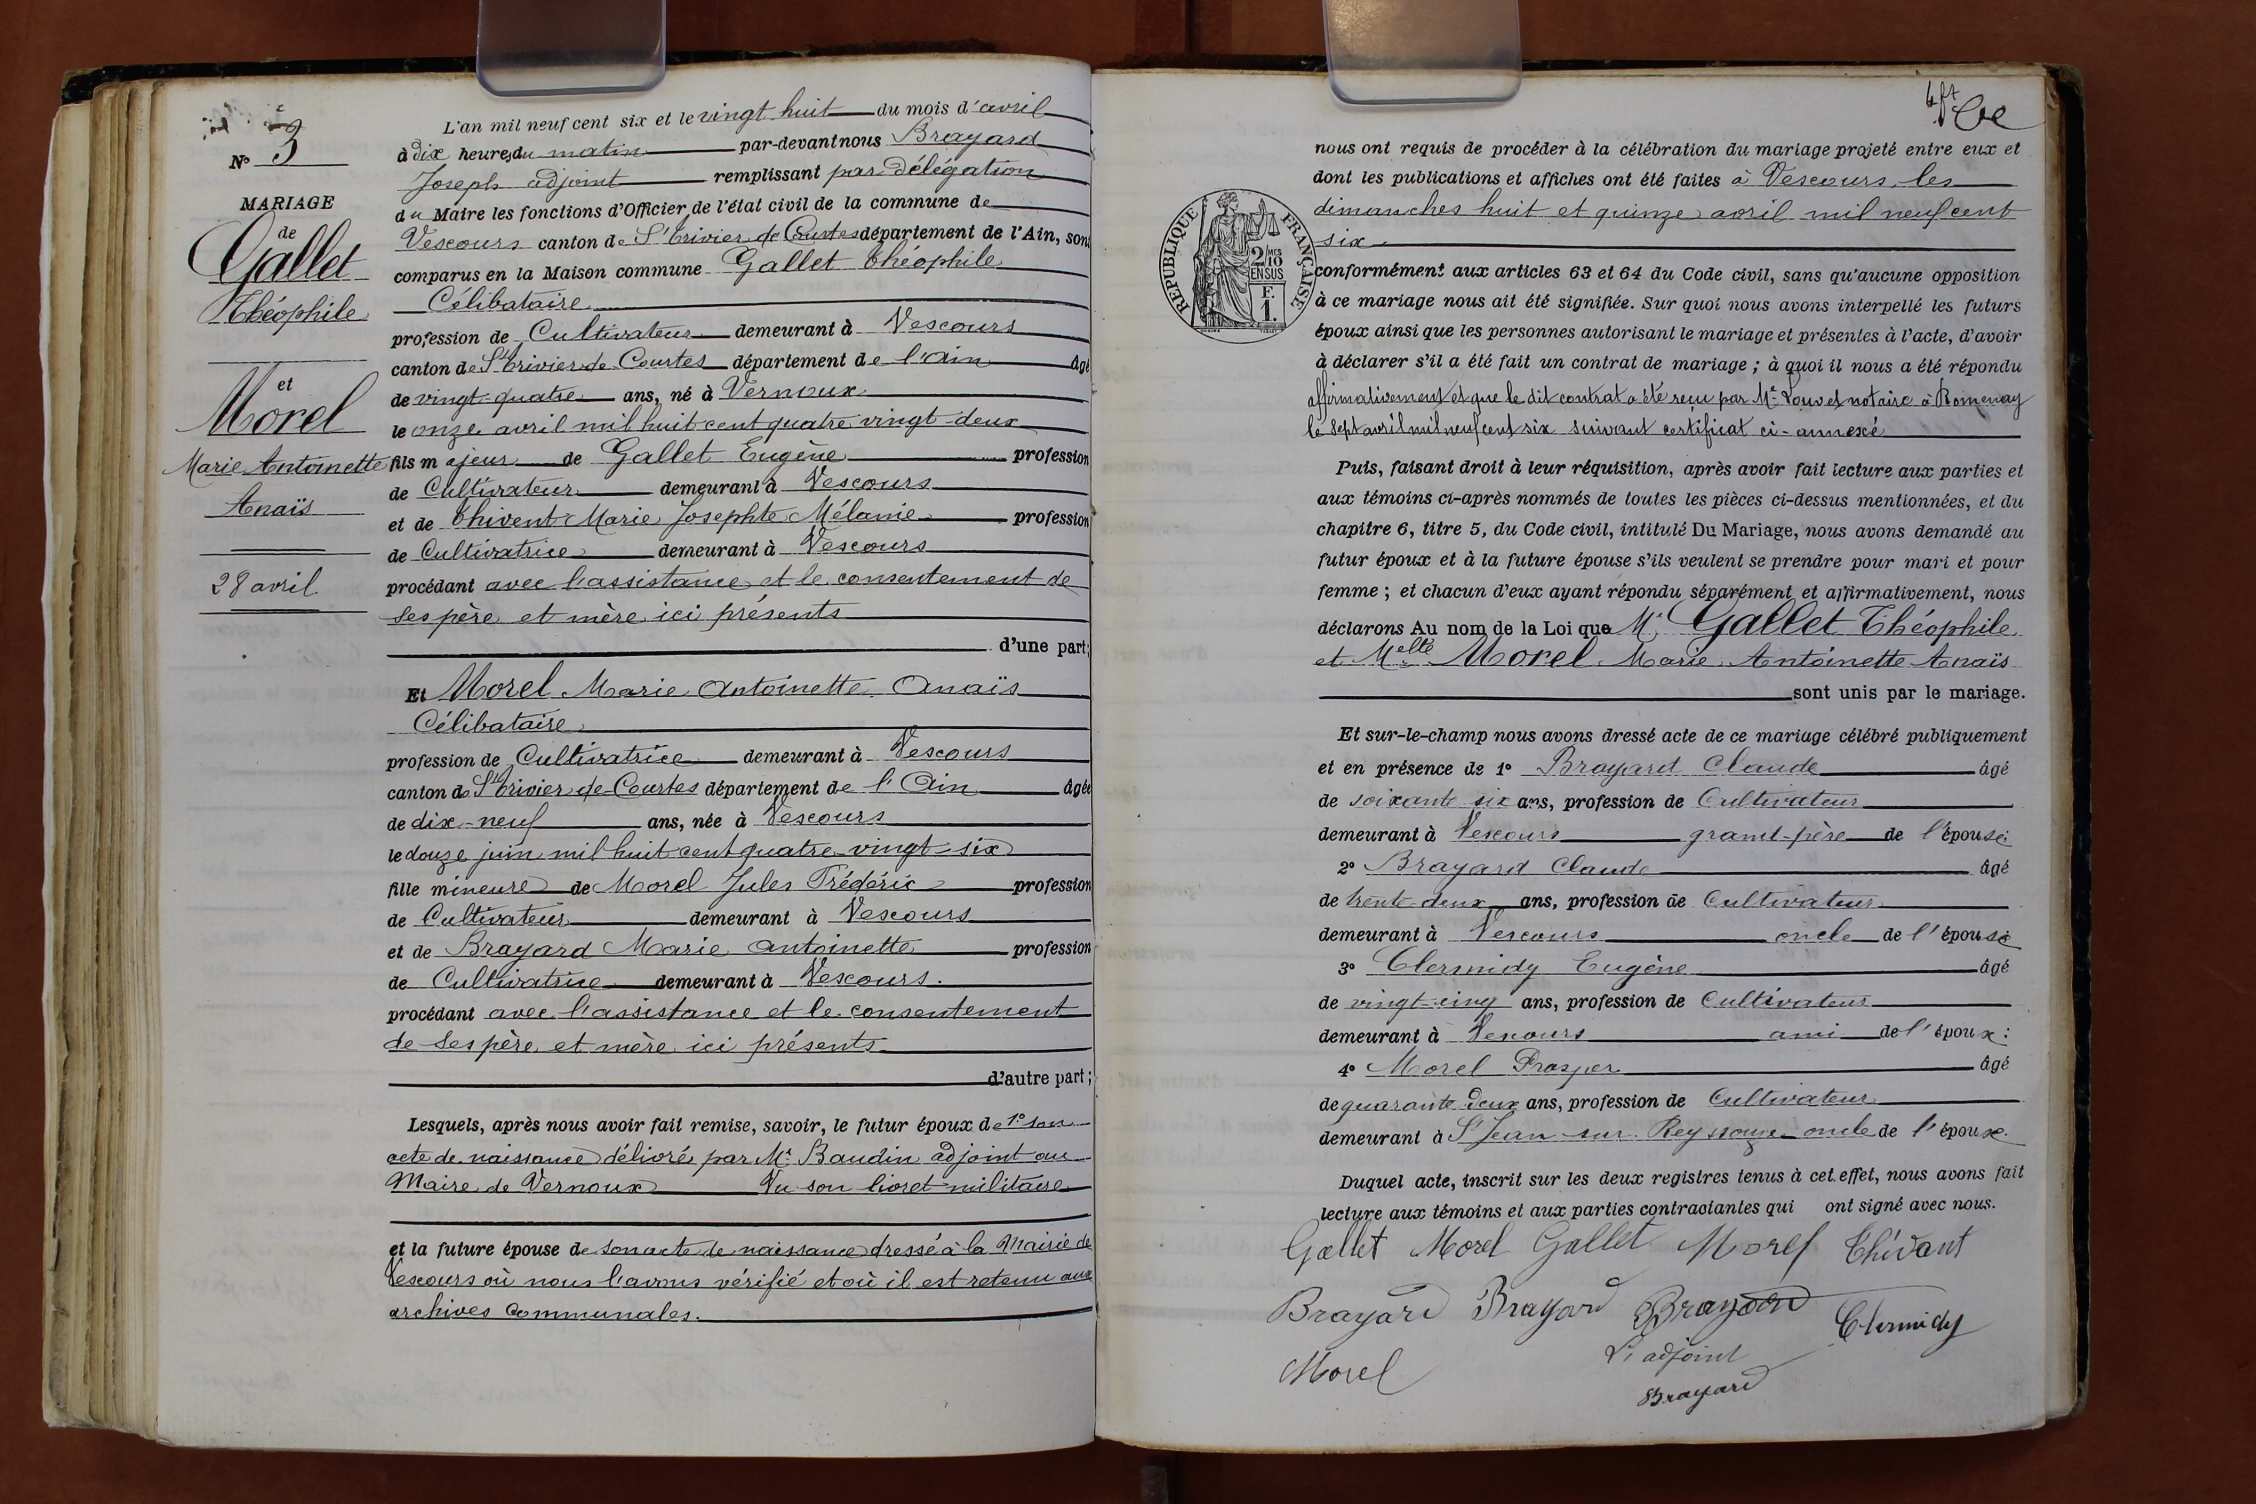 N° 3
MARIAGE
de
Gallet
Théophile
et
Morel
Marie Antoinette
Anaïs
28 avril
L'an mil neuf cent six et le vingt huit du mois d'avril
à dix heures du matin par-devant nous Brayard
Joseph adjoint remplissant par délégation
du Maire les fonctions d'Officier de l'état civil de la commune de
Vescours canton de St Trivier de Courtes département de l'Ain, sont
comparus en la Maison commune Gallet Théophile
Célibataire
profession de Cultivateur demeurant à Vescours
canton de St Trivier de Courtes département de l'Ain âgé
de vingt-quatre ans, né à Vernoux
le onze avril mil huit cent quatre vingt deux
fils majeur de Gallet Eugène profession
de Cultivateur demeurant à Vescours
et de Thivent Marie Josephte Mélanie profession
de Cultivatrice demeurant à Vescours
procédant avec l'assistance et le consentement de
ses père et mère ici présents
d'une part;
Et Morel Marie Antoinette Anaïs
Célibataire
profession de Cultivatrice demeurant à Vescours
canton de St Trivier de Courtes département de l'Ain âgée
de dix-neuf ans, née à Vescours
le douze juin mil huit cent quatre-vingt-six
fille mineure de Morel Jules Frédéric profession
de Cultivateur demeurant à Vescours
et de Brayard Marie Antoinette profession
de Cultivatrice demeurant à Vescours.
procédant avec l'assistance et le consentement
de ses père et mère ici présents
d'autre part;
Lesquels, après nous avoir fait remise, savoir, le futur époux de 1° son
acte de naissance délivré par Mr Baudin adjoint au
Maire de Vernoux Vu son livret militaire
et la future épouse de son acte de naissance dressé à la Mairie de
Vescours où nous l'avons vérifié et où il est retenu aux
archives communales.
nous ont requis de procéder à la célébration du mariage projeté entre eux et
dont les publications et affiches ont été faites à Vescours les
dimanches huit et quinze avril mil neuf cent
six
RÉPUBLIQUE FRANÇAISE
2/10 MES
EN SUS
F.
1.
conformément aux articles 63 et 64 du Code civil, sans qu'aucune opposition
à ce mariage nous ait été signifiée. Sur quoi nous avons interpellé les futurs
époux ainsi que les personnes autorisant le mariage et présentes à l'acte, d'avoir
à déclarer s'il a été fait un contrat de mariage ; à quoi il nous a été répondu
affirmativement et que le dit contrat a été reçu par Me Louvet notaire à Romenay
le sept avril mil neuf cent six suivant certificat ci-annexé
Puis, faisant droit à leur réquisition, après avoir fait lecture aux parties et
aux témoins ci-après nommés de toutes les pièces ci-dessus mentionnées, et du
chapitre 6, titre 5, du Code civil, intitulé Du Mariage, nous avons demandé au
futur époux et à la future épouse s'ils veulent se prendre pour mari et pour
femme ; et chacun d'eux ayant répondu séparément et affirmativement, nous
déclarons Au nom de la Loi que Mr Gallet Théophile
et Melle Morel Marie Antoinette Anaïs
sont unis par le mariage.
Et sur-le-champ nous avons dressé acte de ce mariage célébré publiquement
et en présence de 1° Brayard Claude âgé
de soixante six ans, profession de Cultivateur
demeurant à Vescours grand-père de l'épouse:
2° Brayard Claude âgé
de trente-deux ans, profession de Cultivateur
demeurant à Vescours oncle de l'épouse
3° Clermidy Eugène âgé
de vingt-cinq ans, profession de Cultivateur
demeurant à Vescours ami de l'époux:
4° Morel Prosper âgé
de quarante deux ans, profession de Cultivateur
demeurant à St Jean-sur-Reyssouze oncle de l'épouse.
Duquel acte, inscrit sur les deux registres tenus à cet effet, nous avons fait
lecture aux témoins et aux parties contractantes qui ont signé avec nous.
Gallet Morel Gallet Morel Thivent
Brayard Brayard Brayard Clermidy
Morel
L'adjoint
Brayard